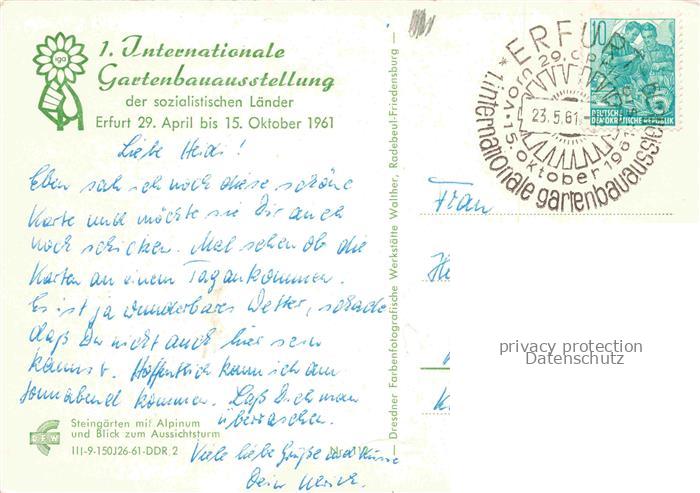 iga
1. Internationale
Gartenbauausstellung
der sozialistischen Länder
Erfurt 29. April bis 15. Oktober 1961
Liebe Heidi!
Eben sah ich noch diese schöne
Karte und möchte sie Dir auch
noch schicken. Mal sehen ob die
Karten an einem Tag ankommen.
Es ist ja wunderbares Wetter, schade
daß Du nicht auch hier sein
kannst. Hoffentlich kann ich am
Sonnabend kommen. Laß Dich man
überraschen.
Viele liebe Grüße und Küsse
Dein Ulrich.
Steingärten mit Alpinum
und Blick zum Aussichtsturm
DFW
III-9-150J26-61-DDR 2
Dresdner Farbenfotografische Werkstätte Walther, Radebeul-Friedensburg
ERFURT
vom 29. April
23.5.61
15. oktober 1961
1. internationale gartenbauausstellung
10
5
DEUTSCHE
DEMOKRATISCHE REPUBLIK
Frau
privacy protection
Datenschutz